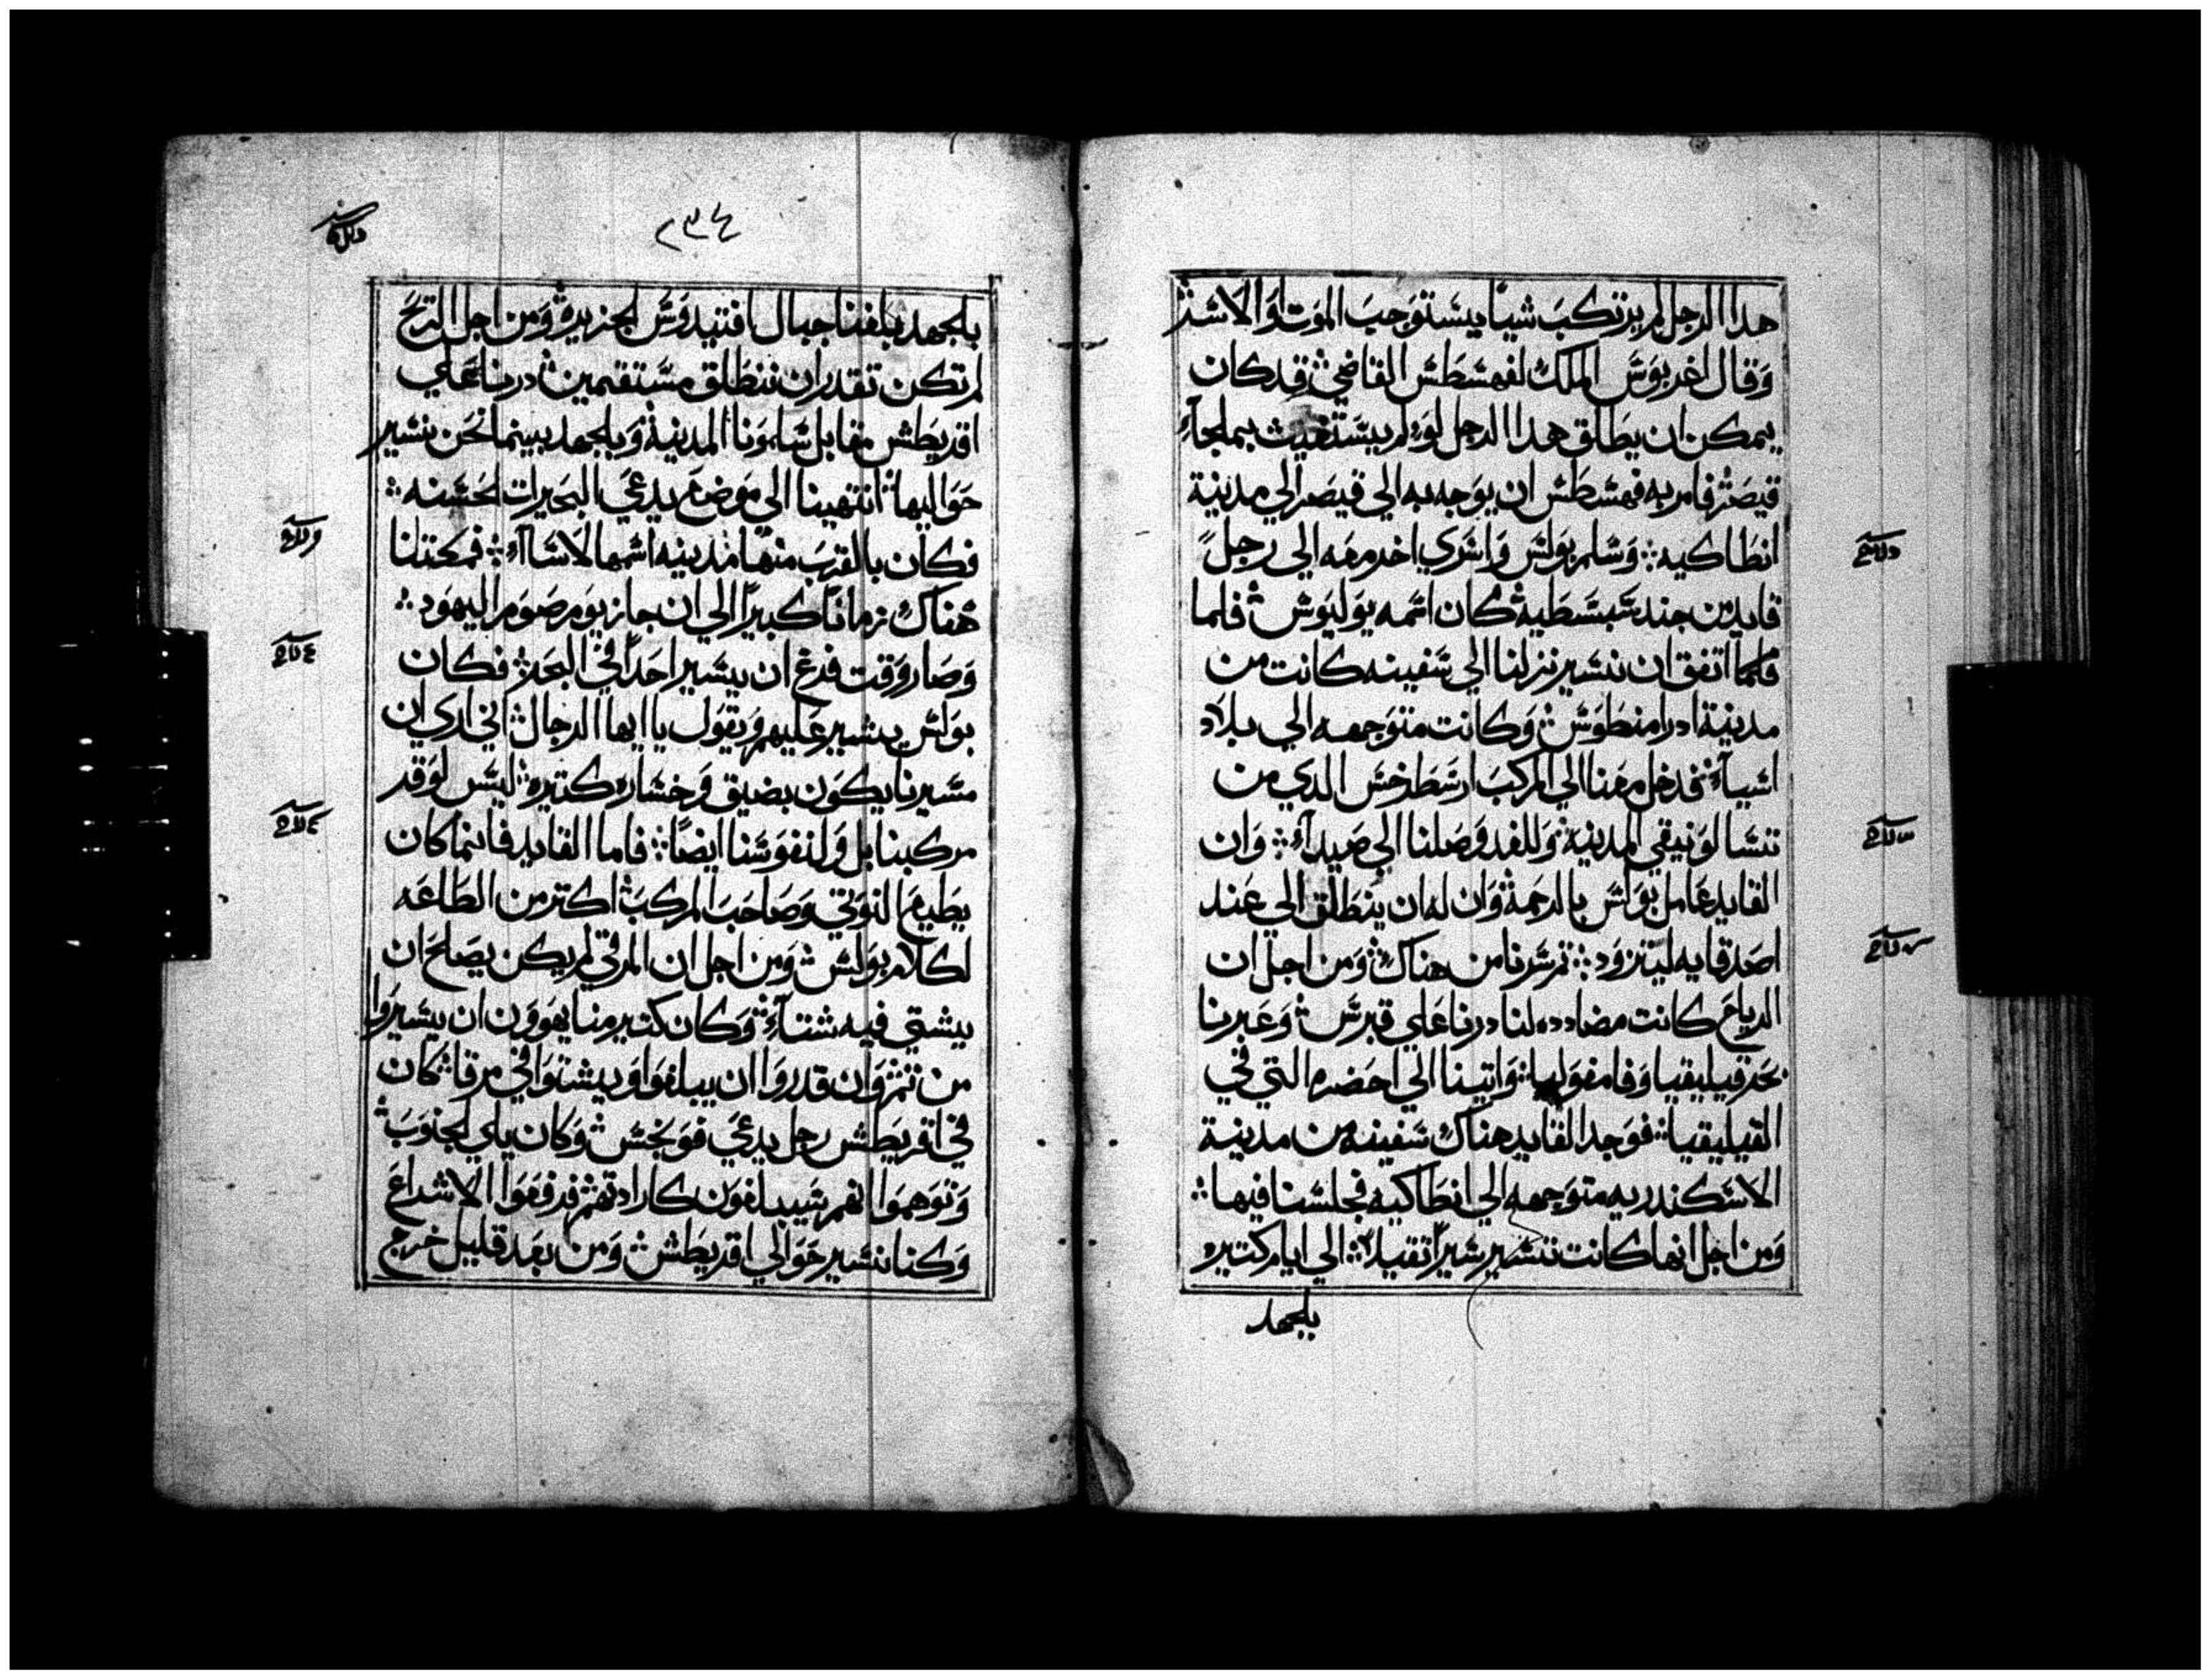 هدا الرجل لم يرتكب شياً يستوجب الموت او الاسْر
وقال اغربوس الملك لفهسطس القاضي قد كان
يمكن ان يطلق هدا الرجل لو لم يستغيث بملجآء
قيصر فامر به فهسطس ان يوجه به الي قيصر الي مدينة
انطاكيه وسلم بولس واسري اخر معه الي رجل
قايد من جند سبسطيه كان اسمه يوليوس فلما
فلما اتفق ان نسير نزلنا الي سفينه كانت من
مدينة ادرامنطوس وكانت متوجهه الي بلاد
اسيآء فدخل معنا الي المركب ارسطرخس الدي من
تسالونيقي المدينه وللغد وصلنا الي صيدآء وان
القايد عامل بولس بالرحمة وان له ان ينطلق الي عند
اصدقايه ليتزود تم سرنا من هناك ومن اجل ان
الرياح كانت مضادده لنا درنا علي قبرس وعبرنا
بحر قيليقيا وفامفوليا واتينا الي احضره التي في
القيليقيا فوجد القايد هناك سفينه من مدينة
الاسكندريه متوجهه الي انطاكيه فجلسنا فيها
ومن اجل انها كانت تسير سيراً تقيلا الي ايام كتيره
بلجهد
٢٣٤
بلجهد بلغنا جبال افنيدوس الجزيره ومن اجل الريح
لم تكن تقدر ان ننطلق مستقمين درنا علي
اقريطش مقابل سلمونا المدينة وبلجهد بينما نحن نسير
حواليها انتهينا الي موضع يدعي البحيرات الحسنه
فكان بالقرب منها مدينه اسمها لاساآء فمكتنا
هناك زماناً كبيراً الي ان جاز يوم صوم اليهود
وصار وقت فزع ان يسير احداً في البحر فكان
بولس يشير عليهم ويقول يا ايها الرجال اني اري ان
مسيرنا يكون بضيق وخساره كتيره ليس لوقر
مركبنا بل ولنفوسنا ايضاً فاما القايد فانما كان
يطيع النوتي وصاحب المركب اكتر من الطاعه
لكلام بولس ومن اجل ان المرقي لم يكن يصلح ان
يشتي فيه شتآء وكان كتير منا يهوون ان يسيروا
من تم وان قدروا ان يبلغوا ويشتوا في مرقا كان
في اقريطش رجل يدعي فونخس وكان يلي الجنوب
وتوهموا انهم سيبلغون كارادتهم فرفعوا الاشراع
وكنا نسير حوالي اقريطش ومن بعد قليل خرج